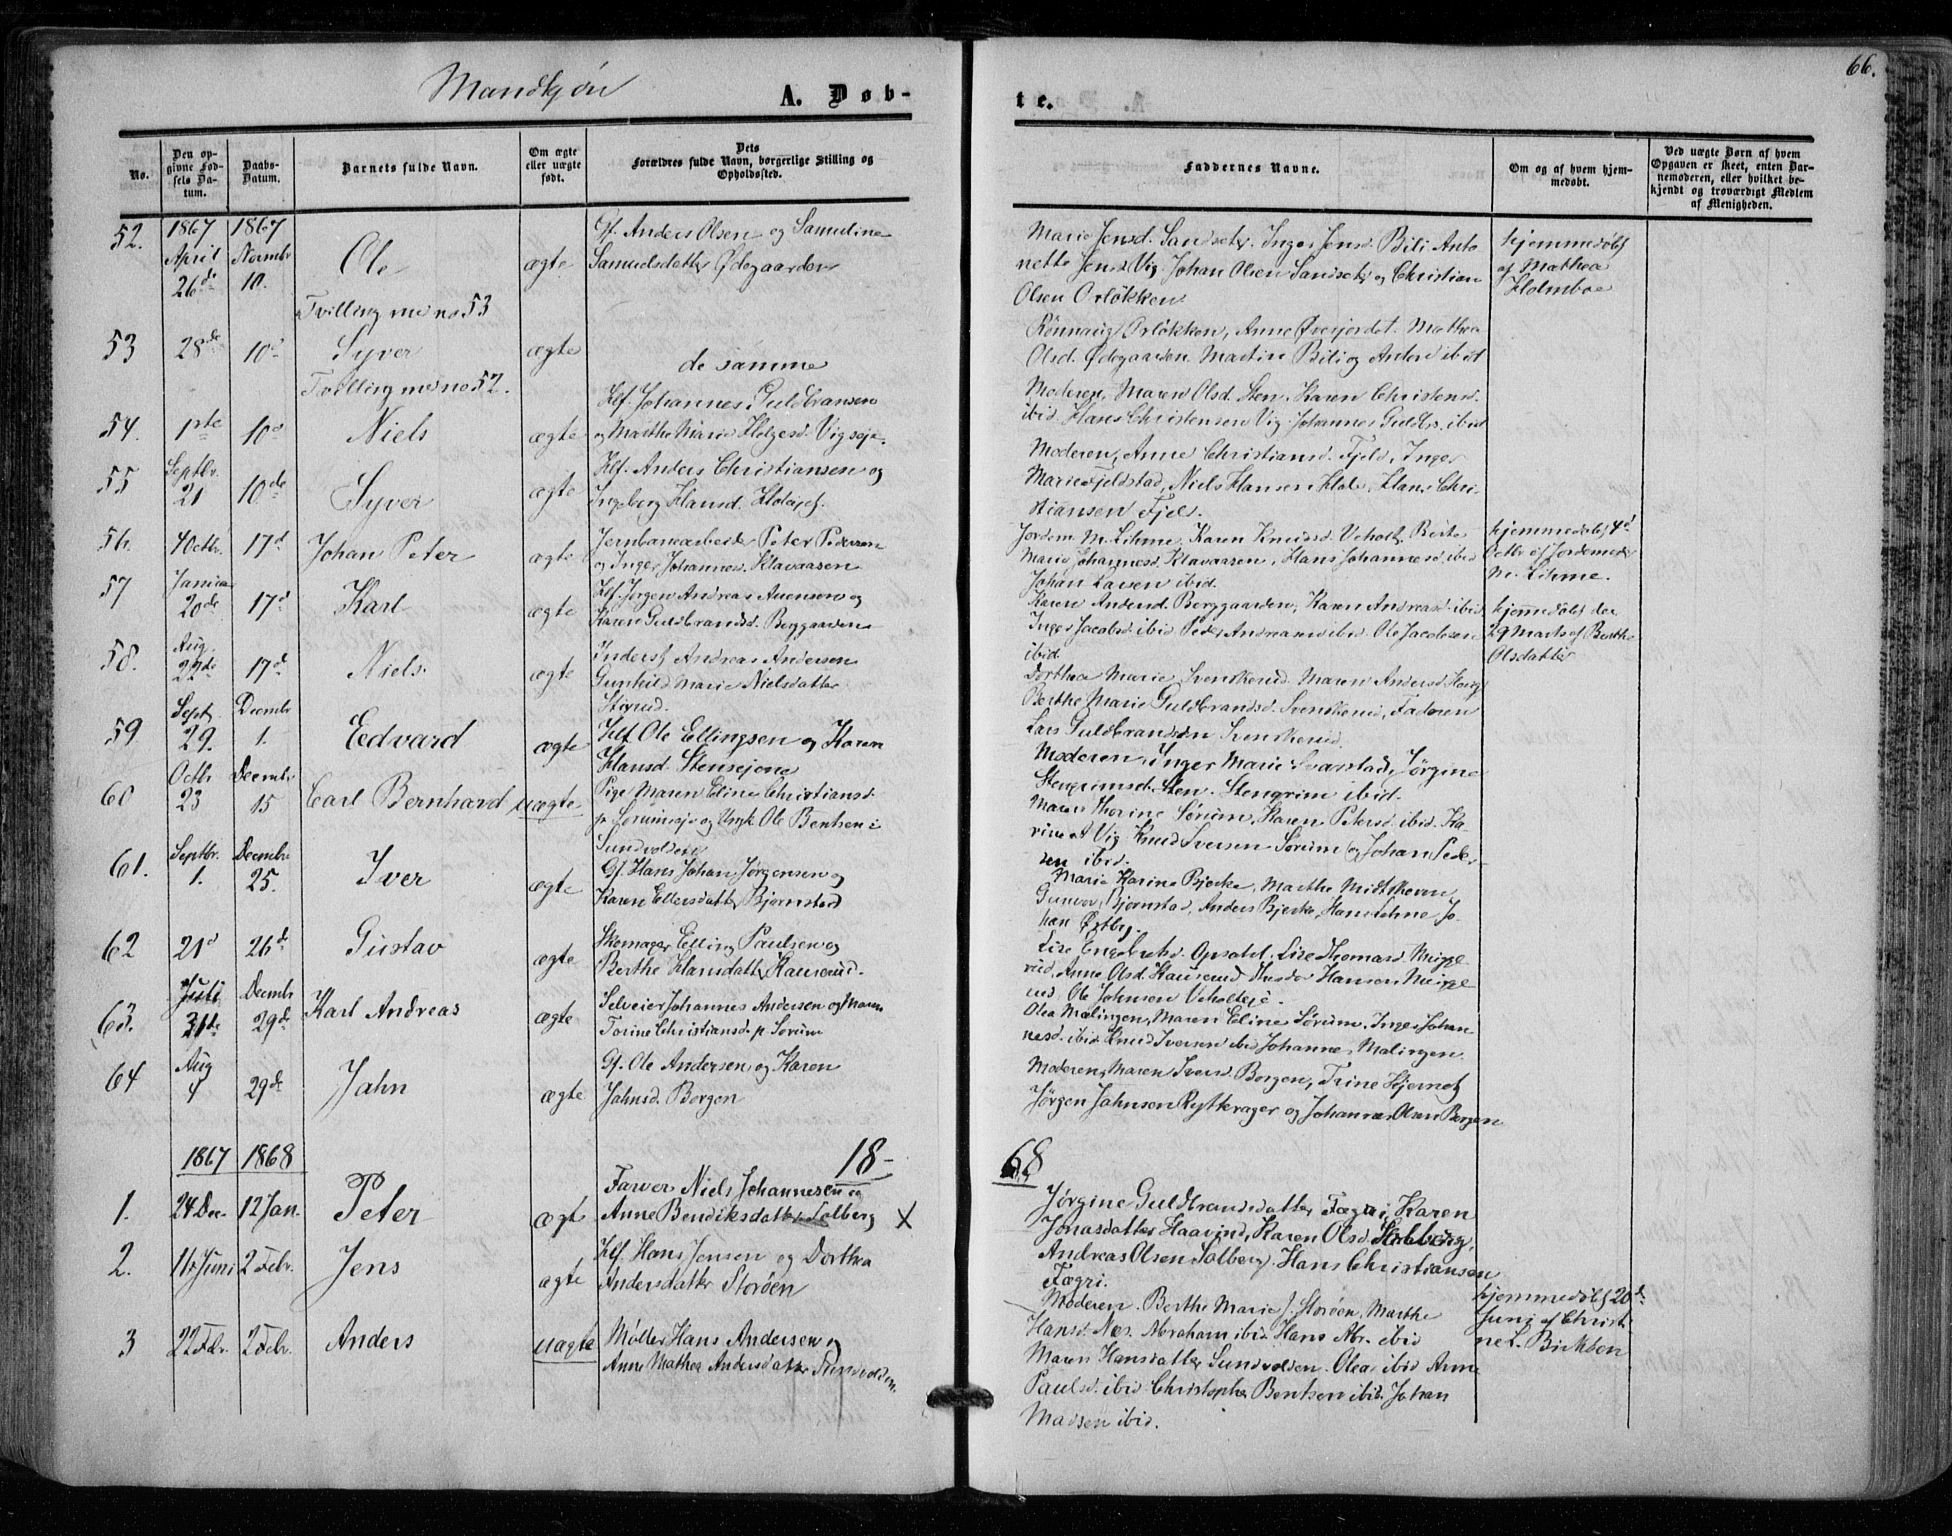 66.
Mandkjøn
A. Døb-
te.
No.
Den op-
givne Fød-
sels Da-
tum.
Daabs-
Datum.
Barnets fulde Navn.
Om ægte
eller uægte
født.
Dets
Forældres fulde Navn, borgerlige Stilling og
Opholdssted.
Faddernes Navne.
Om og af hvem hjem-
medøbt.
Ved uægte Børn af hvem
Opgaven er skeet, enten Bar-
nemoderen, eller hvilket be-
kjendt og troværdigt Medlem
af Menigheden.
52.
1867
April
26de
1867
Novembr
10.
Ole
Tvilling med no 53
ægte
Gf. Anders Olsen og Samueline
Samuelsdatter Ødegaarden
Marie Jensd. Sandseter. Inger Jensd. Bili Anto
nette Jensd Vig. Johan Olsen Sandseter og Christian
Olsen Orløkken
hjemmedøbt
af Mathea
Holmboe
53
28de
10d
Syver
Tvilling med no 52.
ægte
de samme
Rønnaug Orløkken, Anne Øverjordet. Mathea
Olsd. Ødegaarden Martin Bili og Anton ibid
54.
1ste
10d
Niels
ægte
Hf. Johannes Guldbransen
og Marthe Marie Helgesd. Vigseje.
Moderen, Maren Olsd. Sten, Karen Christensd.
ibid. Hans Christensen Vig. Johannes Guldbr. ibid
55
Septbr.
21
10de
Syver
ægte
Hf. Anders Christiansen og
Ingeborg Hansd. Holeiet.
Moderen, Anne Christiansd. Fjeld, Inger
Marie Fjeldstad, Niels Hansen Hole, Hans Chri-
stiansen Fjeld.
56.
4 Octbr.
17d
Johan Peter
ægte
Jernbanearbeider Peter Pedersen
og Inger Johannesd. Klavaasen
Jordem. M. Lihme, Karen Knudsd. Veholt, Berte
Marie Johannesd. Klavaasen, Hans Johannesd ibid
Johan Larsen ibid.
hjemmedøbt 4d
Octbr af Jordemoder
M. Lihme.
57
Januar
20de
17d
Karl
ægte
Hf. Jørgen Andreas Auensen og
Karen Guldbrandsd. Borggaarden
Karen Andersd. Borggaarden, Karen Andreasd. ibid
Inger Jacobsd ibid Peder Andreasen ibid. Ole Jacobsen
ibid
hjemmedøbt den
29 Marts af Berthe
Olsdatter
58.
Aug.
22de
17d
Niels.
ægte
Inderst Andreas Andersen
Gunhild Marie Nielsdatter
Stixrud.
Dorthea Marie Svenskerud. Maren Andersd. Haug
Berthe Marie Guldbrandsd. Svenskerud, Faderen
Lars Guldbrandsen Svenskerud.
59
Sept.
29.
Decembr
1.
Eedvard
ægte
Hf. Ole Ellingsen og Karen
Hansd. Stensejene
Moderen, Inger Marie Svarstad, Jørgine
Stengrimsd. Sten. Stengrim ibid.
60
Octbr
23
Decembr
15
Carl Bernhard
uægte
Pige Maren Eline Christiansd.
p. Sørumseje og Ungk Ole Bentsen i
Sundvolden
Maren Thorine Sørum, Karen Petersd. ibid. Ka-
rine A Vig Knud Iversen Sørum og Johan Peder-
sen ibid.
61.
Septbr.
1.
Decembr
25.
Iver
ægte
Gf. Hans Johan Jørgensen og
Karen Ellersdatter Bjørnstad
Marie Karine Bjerke, Marthe Midtskoven
Gunvor Bjørnstad, Anders Bjerke, Hans Lehne Jo-
han Østby.
62
21d
26de
Gustav
ægte
Skomager Elling Paulsen og
Berthe Hansdatter Kauserud.
Lise Engebretsd. Opsahl. Lise Thomasd.
Anne Olsd. Kauserud Hansen
Ole Johnsen Veholteje.
63.
Juli
31te
Decembr
29de
Karl Andreas
ægte
Selveier Johannes Andersen og Maren
Torine Christiansd. p. Sørum
Olea Mælingen, Maren Eline Sørum, Inger Johan
nesd. ibid Knud Iversen ibid Johannes Mælingen
64
Aug
4
29de
Jahn
ægte
Gf. Ole Andersen og Karen
Jahnsd. Borgen
Moderen, Maren Iversd. Borgen, Trine Hjernet
Jørgen Jahnsen Rytterager og Johannes Olsen Borgen
1867
1868
18-
68
1.
24 Dec.
12 Jan.
Peter
ægte
Farver Niels Johannesen og
Anne Bendiksdatter Solberg
X
Jørgine Guldbrandsdatter Fægri, Karen
Jonasdatter Haavind, Karen Olsd. Solberg,
Andreas Olsen Solberg. Hans Christiansen
Fægri.
2.
16 Juni
2 Febr.
Jens
ægte
Hf. Hans Jensen og Dorthea
Andersdatter Storøen
Moderen. Berthe Marie J. Storøen, Marthe
Hansd. Næs. Abraham ibid Hans Abr. ibid
hjemmedøbt 20de
Juni af Christi
ne L. Bjerksen
3
22 Febr.
2 Febr.
Anders
uægte
Møller Hans Andersen og
Anne Mathea Andersdatter Sundvolden.
Maren Hansdatter Sundvolden. Olea ibid Anne
Paulsd. ibid Christopher Bentsen ibid. Johan
Madsen ibid.